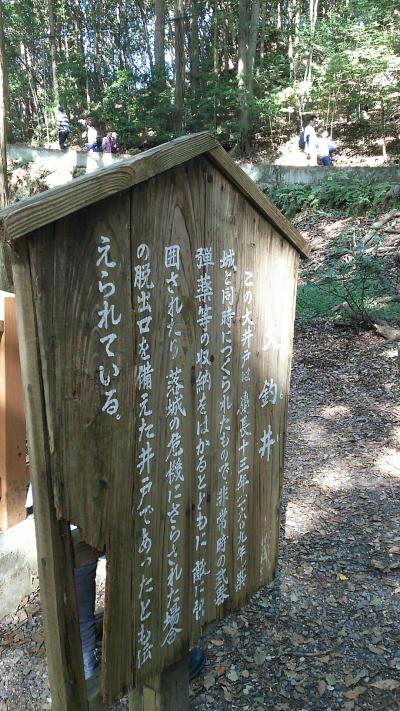 大釣井
この大井戸は慶長十三年(一六〇九年)に
城と同時につくられたもので、非常時の武器
弾薬等の収納をはかるとともに敵に包
囲されたり 落城の危機にさらされた場合
の脱出口を備えた井戸であったとも伝
えられている。